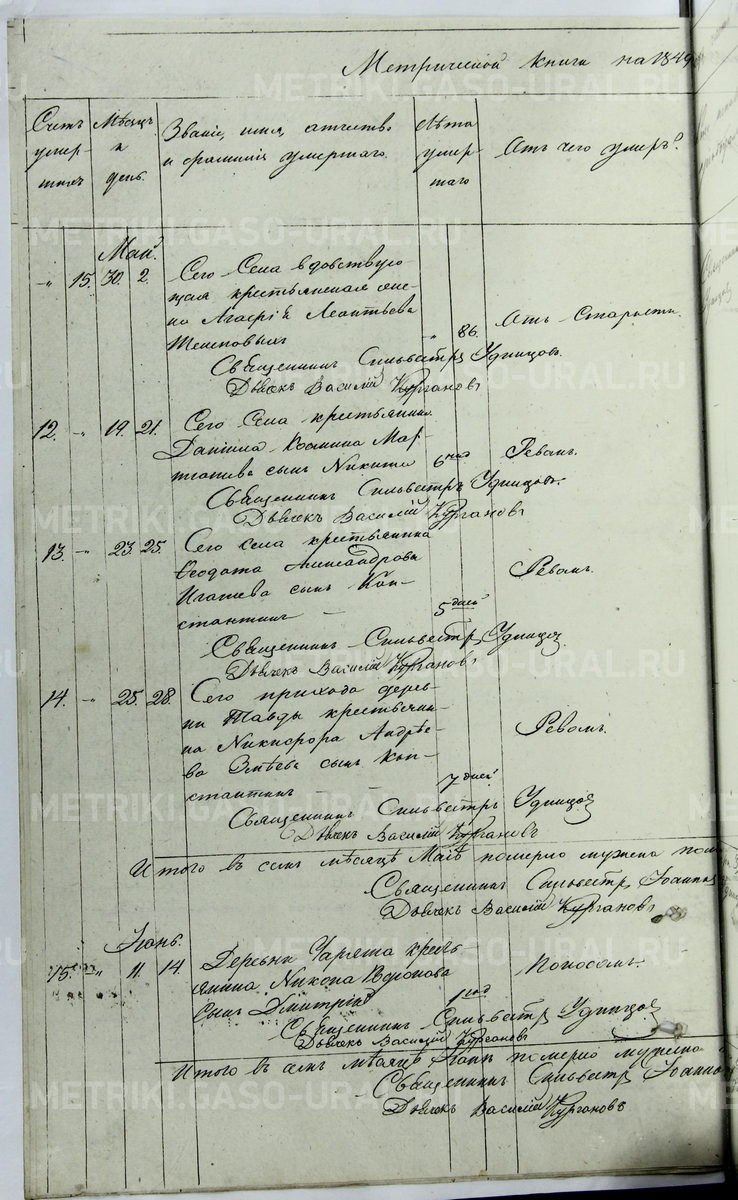 Метрической книги на 1849
Счетъ умер- шихъ
Мѣсяцъ и день.
Званіе, имя, отчество и фамилія умершаго.
Лѣта умер- шаго
Отъ чего умеръ?
Май.
„ 15. 30. 2. Сего Села вдовствую-
щая крестьянская же-
на Леонтьева
86. Отъ Старости.
Священникъ Сильвестръ Удинцовъ.
Дьячекъ Василій Кургановъ
12. „ 19. 21. Сего Села крестьянина
Даніила Козмина
сынъ Никита 6 Ревомъ.
Священникъ Сильвестръ Удинцовъ.
Дьячекъ Василій Кургановъ
13. „ 23. 25. Сего села крестьянина
Ѳеодота Александрова
сынъ Кон-
стантинъ — 5 дней Ревомъ.
Священникъ Сильвестръ Удинцов
Дьячекъ Василій Кургановъ
14. „ 25. 28. Сего прихода дерев-
ни Тавды крестьяни-
на Никифора Андрѣе-
ва сынъ Кон-
стантинъ — 7 дней Ревомъ.
Священникъ Сильвестръ Удинцов
Дьячекъ Василій Кургановъ
Итого въ семъ мѣсяцѣ Маіѣ померло мужеска
Священникъ Сильвестръ Іоанно
Дьячекъ Василій Кургановъ
Іюнь.
15. „ 11. 14. Деревни кресть-
янина Никона Воронова
сынъ Дмитрій 1 год Поносомъ.
Священникъ Сильвестръ Удинцов
Дьячекъ Василій Кургановъ
Итого въ семъ мѣсяцѣ померло мужеска
Священникъ Сильвестръ Іоанно
Дьячекъ Василій Кургановъ
METRIKI.GASO-URAL.RU